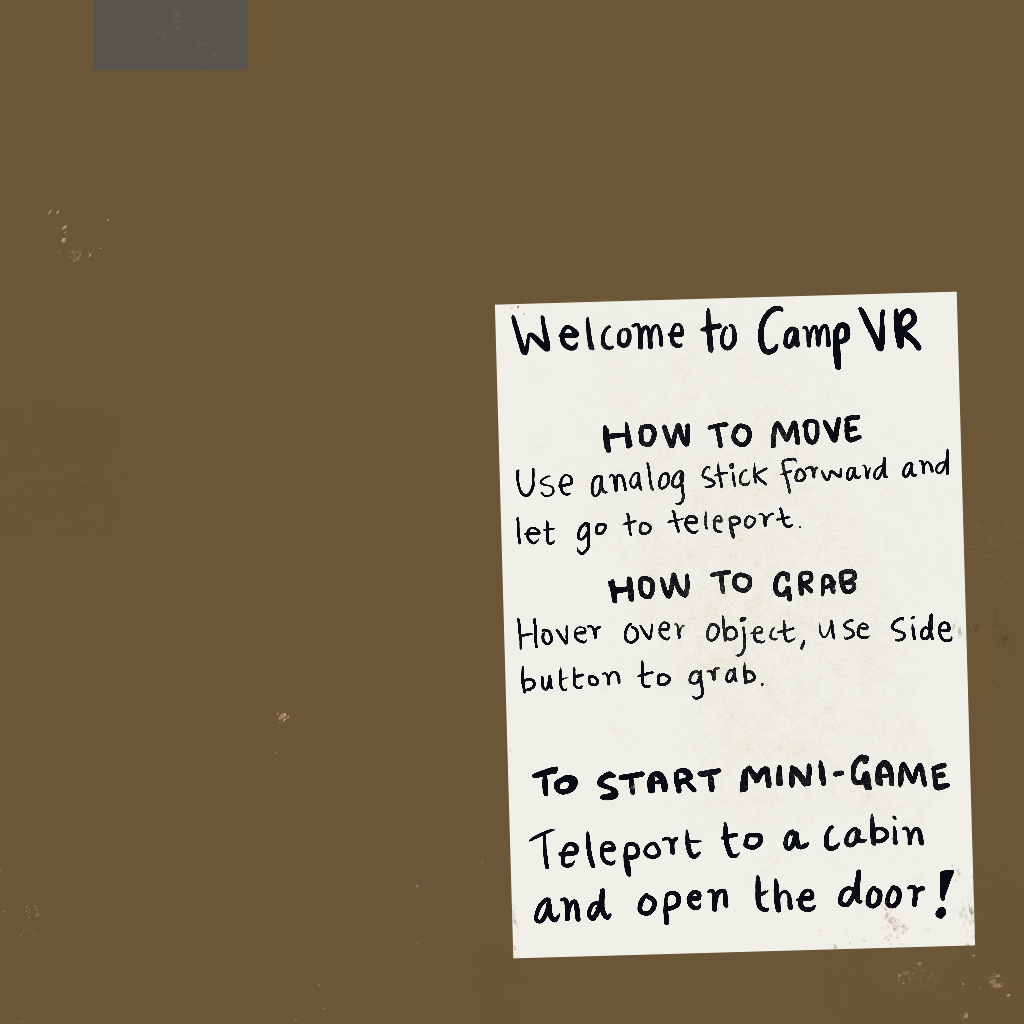 Welcome to Camp VR
HOW TO MOVE
Use analog stick forward and
let go to teleport.
HOW TO GRAB
Hover over object, use side
button to grab.
TO START MINI-GAME
Teleport to a cabin
and open the door!